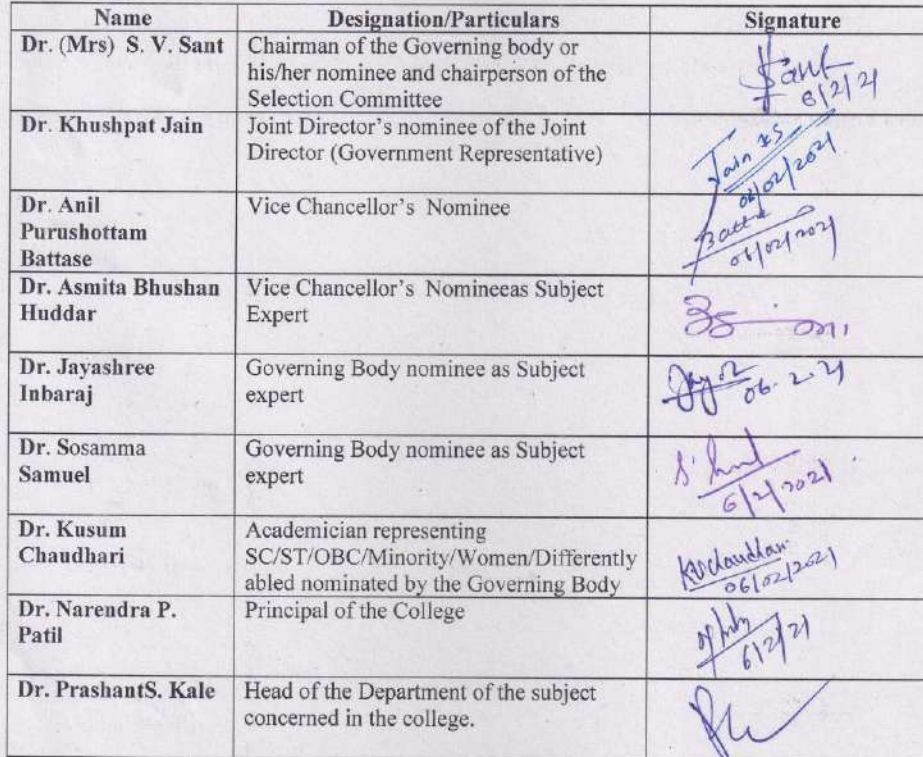 Name Designation/Particulars Signature
Dr. (Mrs) S. V. Sant Chairman of the Governing body or
his/her nominee and chairperson of the
Selection Committee
Sant
6/2/21
Dr. Khushpat Jain Joint Director's nominee of the Joint
Director (Government Representative)
Jain KS
06/02/2021
Dr. Anil Vice Chancellor's Nominee
Purushottam
Battase
Battase
06/02/2021
Dr. Asmita Bhushan Vice Chancellor's Nomineeas Subject
Huddar Expert
Dr. Jayashree Governing Body nominee as Subject
Inbaraj expert
06.2.21
Dr. Sosamma Governing Body nominee as Subject
Samuel expert
6/2/2021
Dr. Kusum Academician representing
Chaudhari SC/ST/OBC/Minority/Women/Differently
abled nominated by the Governing Body
KVChaudhari
06/02/2021
Dr. Narendra P. Principal of the College
Patil
6/2/21
Dr. PrashantS. Kale Head of the Department of the subject
concerned in the college.